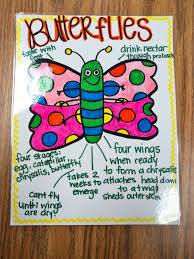 BUTTERFLIES
taste with
feet
drink nectar
through proboscis
four stages:
egg, caterpillar,
chrysalis, butterfly
four wings
when ready
to form a chrysalis
attaches head down
to a twig
sheds outer skin
takes 2
weeks to
emerge
can't fly
until wings
are dry!